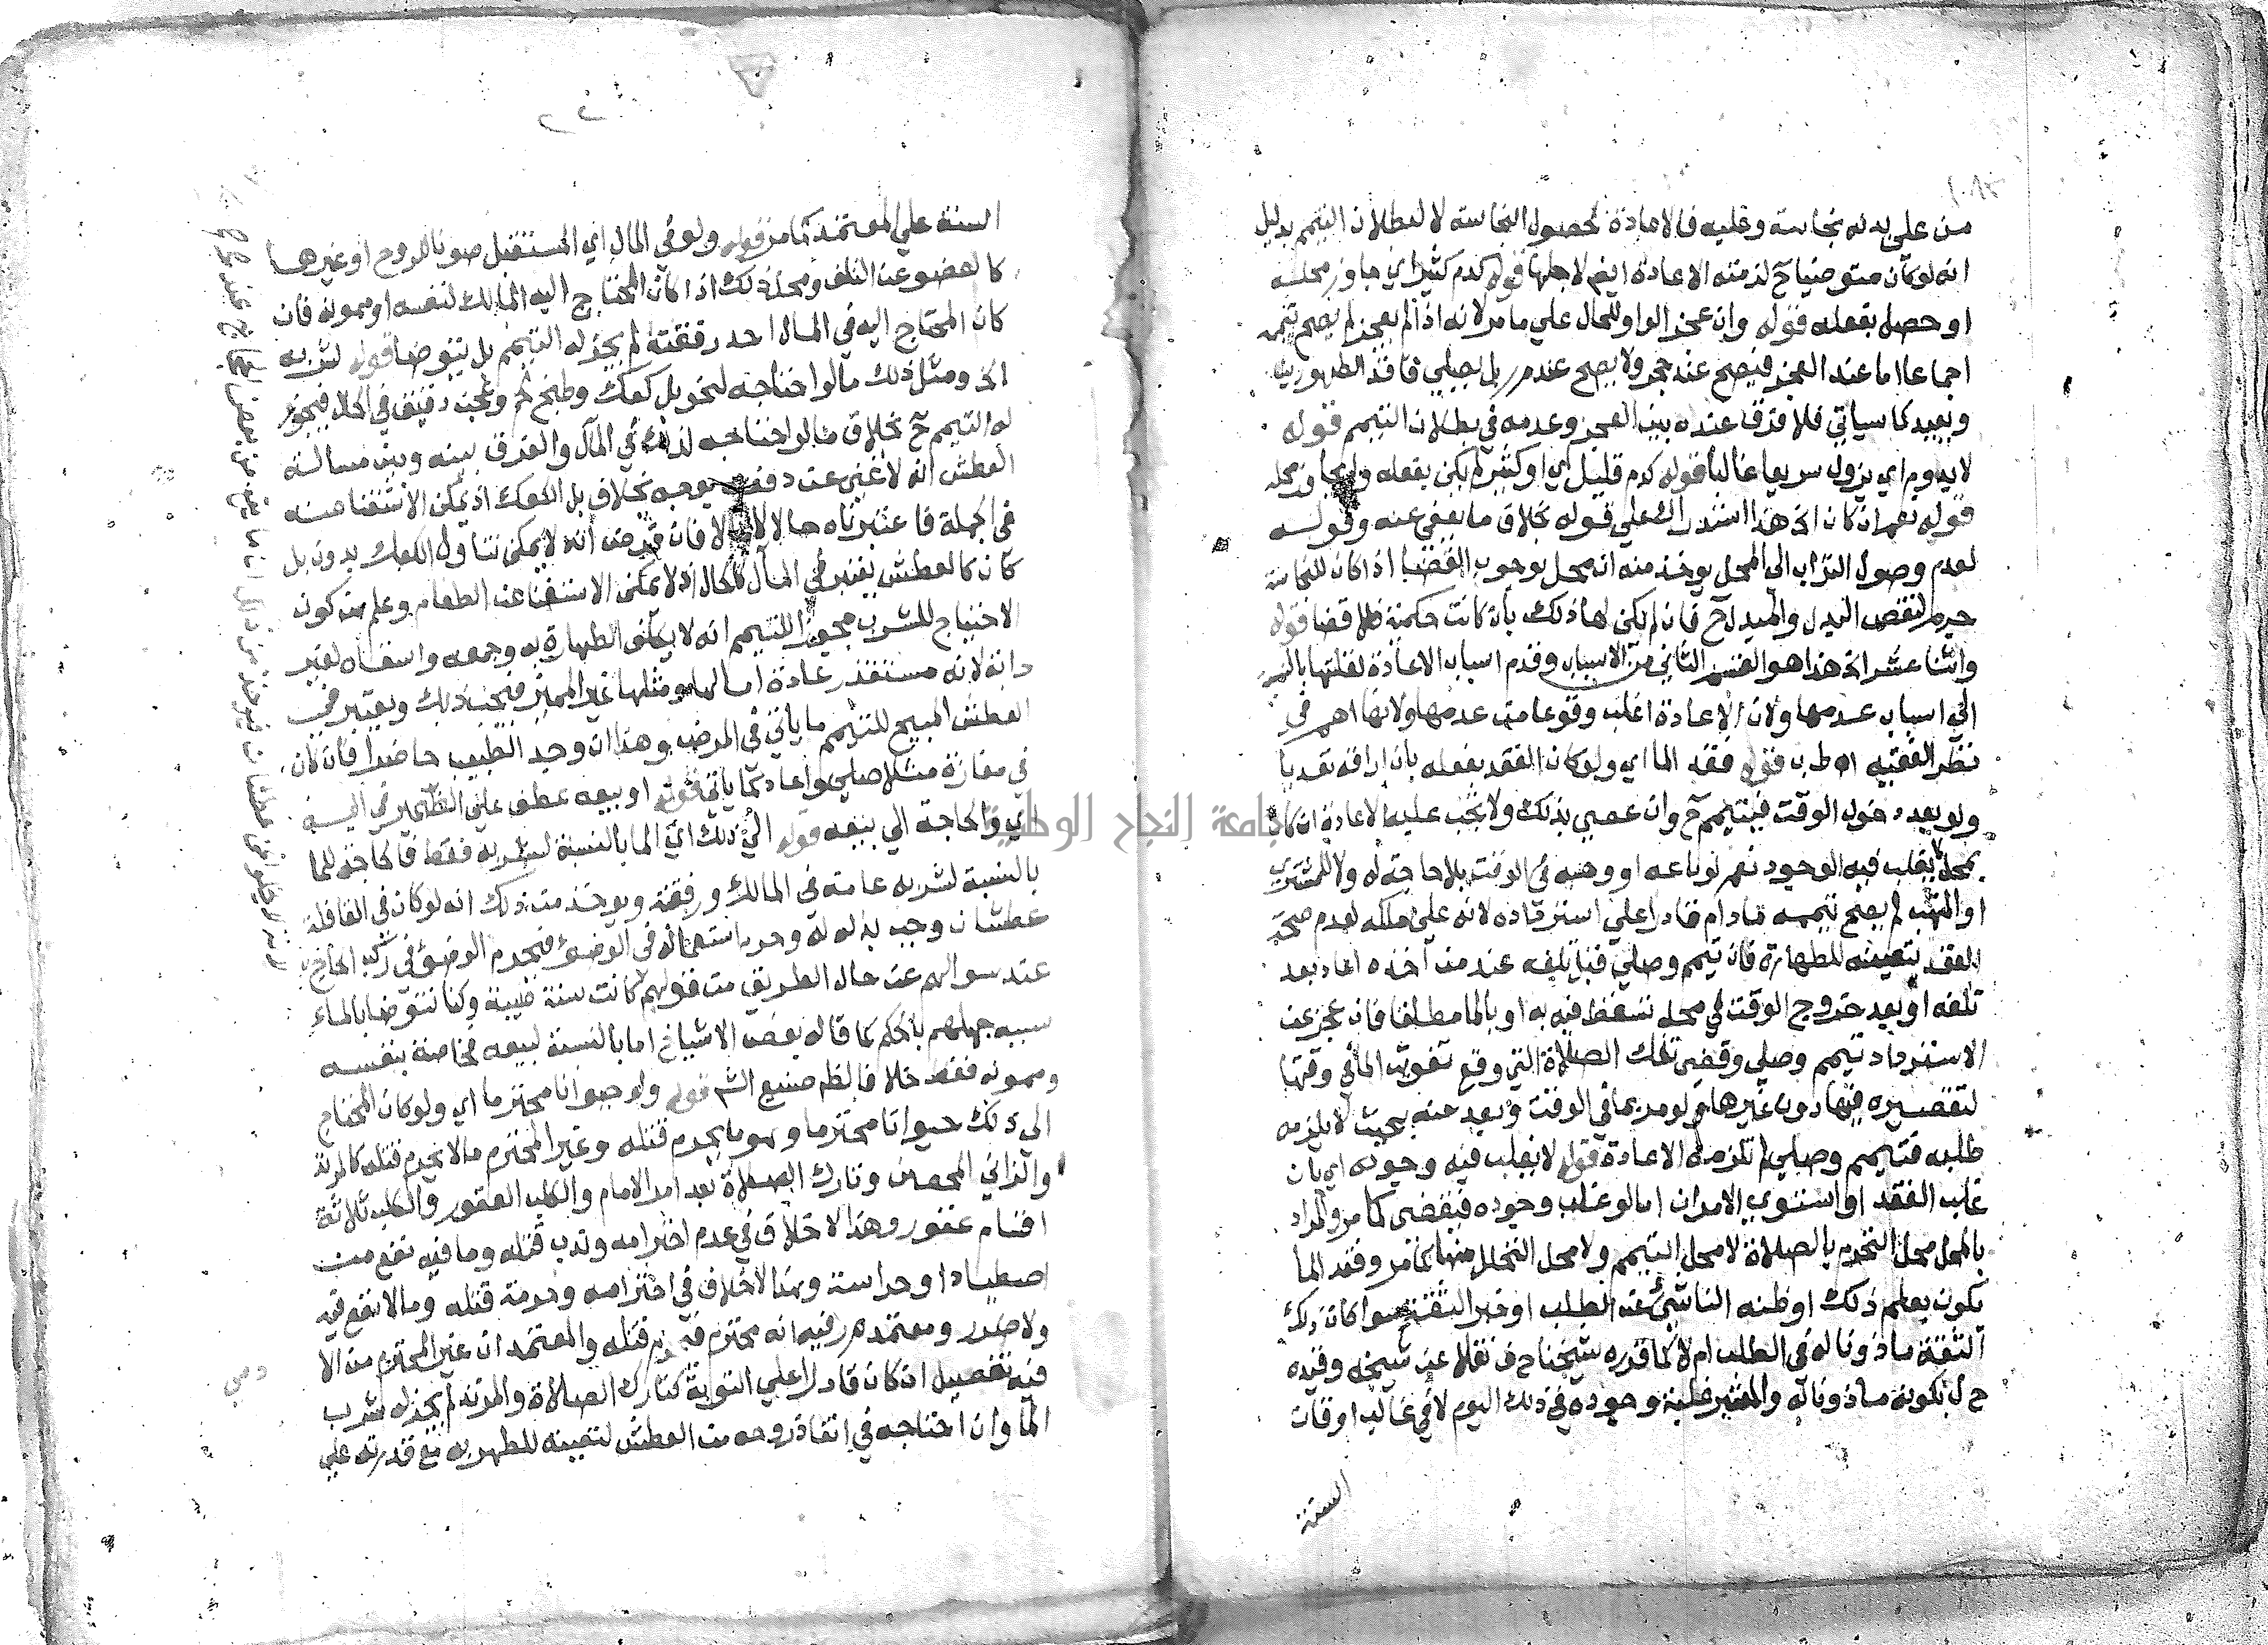 من على بدنه نجاسة وعليه فالاعادة لحصول النجاسة لا لبطلان التيمم بدليل
انه لو كان متوضيا ح لزمته الاعادة ايضا لاجلها قوله كدم كثير اي جاوز محله
او حصل بفعله قوله وان عجز الواو للحال علي ما مر لانه اذا لم يعجز لم يصح تيممه
اجماعا اما عند العجز فيصح عند حجر ولا يصح عند مر بل يصلي فاقد الطهورين
ويعيد كما سياتي فلا فرق عنده بين العجز وعدمه في بطلان التيمم قوله
لا يدوم اي يزول سريعا غالبا قوله كدم قليل اي او كثير لم يكن بفعله ولم يجاوز محله
قوله نعم ان كان الخ هذا استدراك علي قوله بخلاف ما يعفي عنه وقوله
لعدم وصول التراب الي المحل يوخذ منه ان محل وجوب القضا اذا كان للنجاسة
جرم لنقص البدل والمبدل ح فان لم يكن لها ذلك بأن كانت حكمية فلا قضا قوله
واثنا عشر الخ هذا هو القسم الثاني من الاسباب وقدم اسباب الاعادة لقلتها بالنسبة
الي اسباب عدمها ولان الاعادة اغلب وقوعا من عدمها ولانها اهم في
نظر الفقيه اهـ ط ب قوله فقد الما اي ولو كان الفقد بفعله بان اراقه تعديا
ولو بعد دخول الوقت فيتيمم ح وان عصي بذلك ولا يجب عليه الاعادة ان كان
بمحل يغلب فيه الوجود نعم لو باعه او وهبه في الوقت بلا حاجة له ولا للمشتري
او المتهب لم يصح تيممه مادام قادرا على استرداده لانه على ملكه لعدم صحة
العقد لتعينه للطهارة فان تيمم وصلي فبتلفه عند من اخذه اعاد بعد
تلفه او بعد خروج الوقت في محل تسقط فيه به او بالما مطلقا فان عجز عن
الاسترداد تيمم وصلي وقضي تلك الصلاة التي وقع تفويت الما في وقتها
لتقصيره فيها دون غيرها ولو مر بما في الوقت وبعد عنه بحيث لا يلزمه
طلبه فتيمم وصلي لم تلزمه الاعادة قوله لا يغلب فيه وجوده اي بان
غلب الفقد او استوي الامران اما لو غلب وجوده فيقضي كما مر والمراد
بالمحل محل التحرم بالصلاة لا محل التيمم ولا محل التحلل منها كما مر وفقد الما
يكون بعلم ذلك او ظنه الناشئ عن الطلب او خبر الثقة سوا كان ذلك
الثقة ماذونا له في الطلب ام لا كما قرره شيخنا ح ف نقلا عن شيخه وقيده
ح ل بكونه ماذونا له والمعتبر غلبة وجوده في ذلك اليوم لا في غالب اوقات
السنة
السنة علي المعتمد كما مر قوله ولو في المال اي المستقبل صونا للروح او غيرها
كالعضو عن التلف ومحل ذلك اذا كان المحتاج اليه المالك لنفسه او ممونه فان
كان المحتاج اليه في المال احد رفقته لم يجز له التيمم بل يتوضا قوله لشربه
الخ ومثل ذلك ما لو احتاجه لنحو بل كعك وطبخ لحم وعجن دقيق في الحال فيجوز
له التيمم ح بخلاف ما لو احتاجه لذلك في المآل والفرق بينه وبين مسالة
العطش انه لا غني عن دفعه بوجه بخلاف بل الكعك اذ يمكن الاستغنا عنه
في الجملة فاعتبرناه حالا لا مآلا فان فرض انه لا يمكن تناول الكعك بدون بل
كان كالعطش يعتبر في المآل كالحال اذ لا يمكن الاستغنا عن الطعام وعلم من كون
الاحتياج للشرب مجوزا للتيمم انه لا يكلف الطهارة به وجمعه واسقاه لغير
دابة لانه مستقذر عادة اما لها ومثلها غير المميز فيجب ذلك ويعتبر في
العطش المبيح للتيمم ما ياتي في المرض وهذا ان وجد الطبيب حاضرا فان كان
في مفازة مثلا صلي واعاد كما ياتي قوله او بيعه عطف علي الظمير في اليه
اي والحاجة الي بيعه قوله الي ذلك اي الما بالنسبة لشربه فقط فالحاجة للما
بالنسبة لشربه عامة في المالك ورفقته ويوخذ من ذلك انه لو كان في القافلة
عطشان وجب بذله له وحرم استعماله في الوضوء فيحرم الوضوء في ركب الحاج
عند سوالهم عن حال الطريق من قولهم كانت سنة طيبة وكنا نتوضا بالماء
سببه جهلهم بالحكم كما قاله بعض الاشياخ اما بالنسبة لبيعه فخاصة بنفسه
وممونه فقط خلافا لظه صنيع الش قوله ولو حيوانا محترما اي ولو كان المحتاج
الي ذلك حيوانا محترما وهو ما يحرم قتله وغير المحترم ما لا يحرم قتله كالمرتد
والزاني المحصن وتارك الصلاة بعد امر الامام والكلب العقور والكلب ثلاثة
اقسام عقور وهذا لا خلاف في عدم احترامه وندب قتله وما فيه نفع من
اصطياد او حراسة وهذا لا خلاف في احترامه وحرمة قتله وما لا نفع فيه
ولا ضرر ومعتمد مر فيه انه محترم فيحرم قتله والمعتمد ان غير المحترم من الا
فيه تفصيل ان كان قادرا علي التوبة كتارك الصلاة والمرتد لم يجز له شرب
الما وان احتاجه في انقاذ روحه من العطش لتعينه للطهر به مع قدرته علي
جامعة النجاح الوطنية